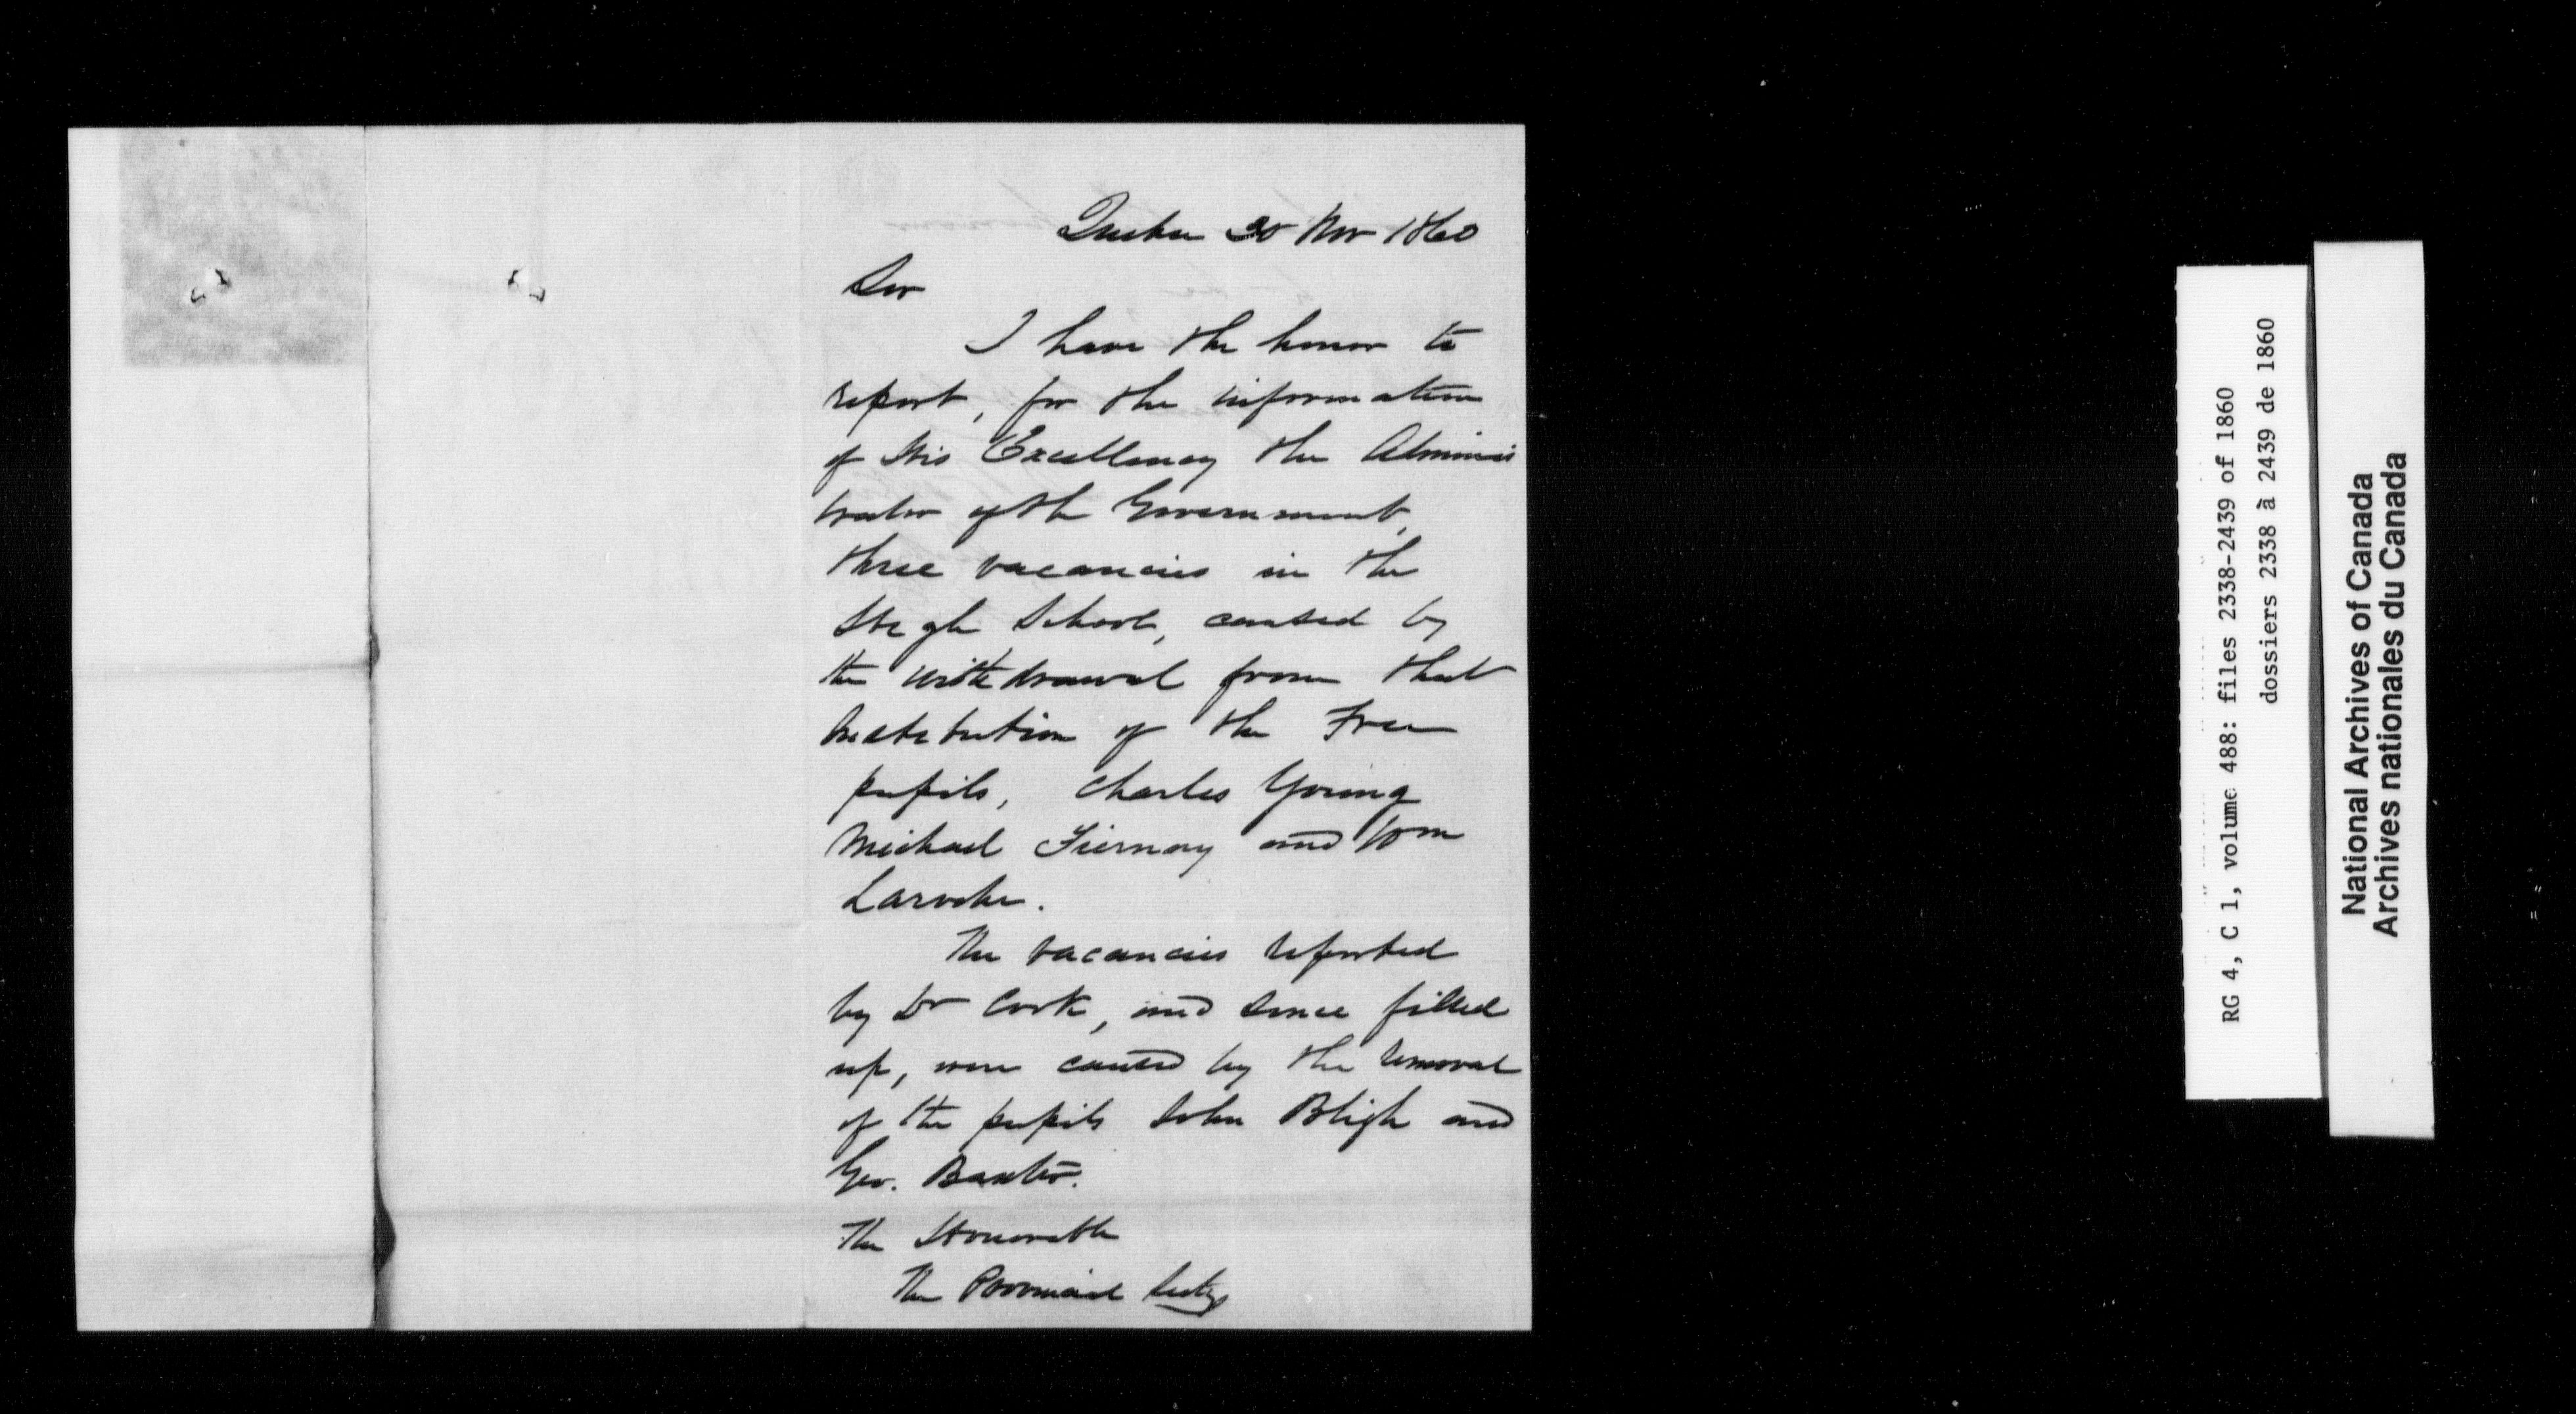 Quebec 30 Nov 1860
Sir
I have the honor to
report, for the information
of His Excellency the Adminis
trator of the Government,
three vacancies in the
High School, caused by
the withdrawal from that
Institution of the Free
pupils, Charles Young
Michael Tiernay and Wm
Laroche.
The vacancies reported
by Dr Cook, and since filled
up, were caused by the removal
of the pupils John Bligh and
Geo. Baxter.
The Honorable
The Provincial Secty
RG 4, C 1, volume 488: files 2338-2439 of 1860
dossiers 2338 à 2439 de 1860
National Archives of Canada
Archives nationales du Canada